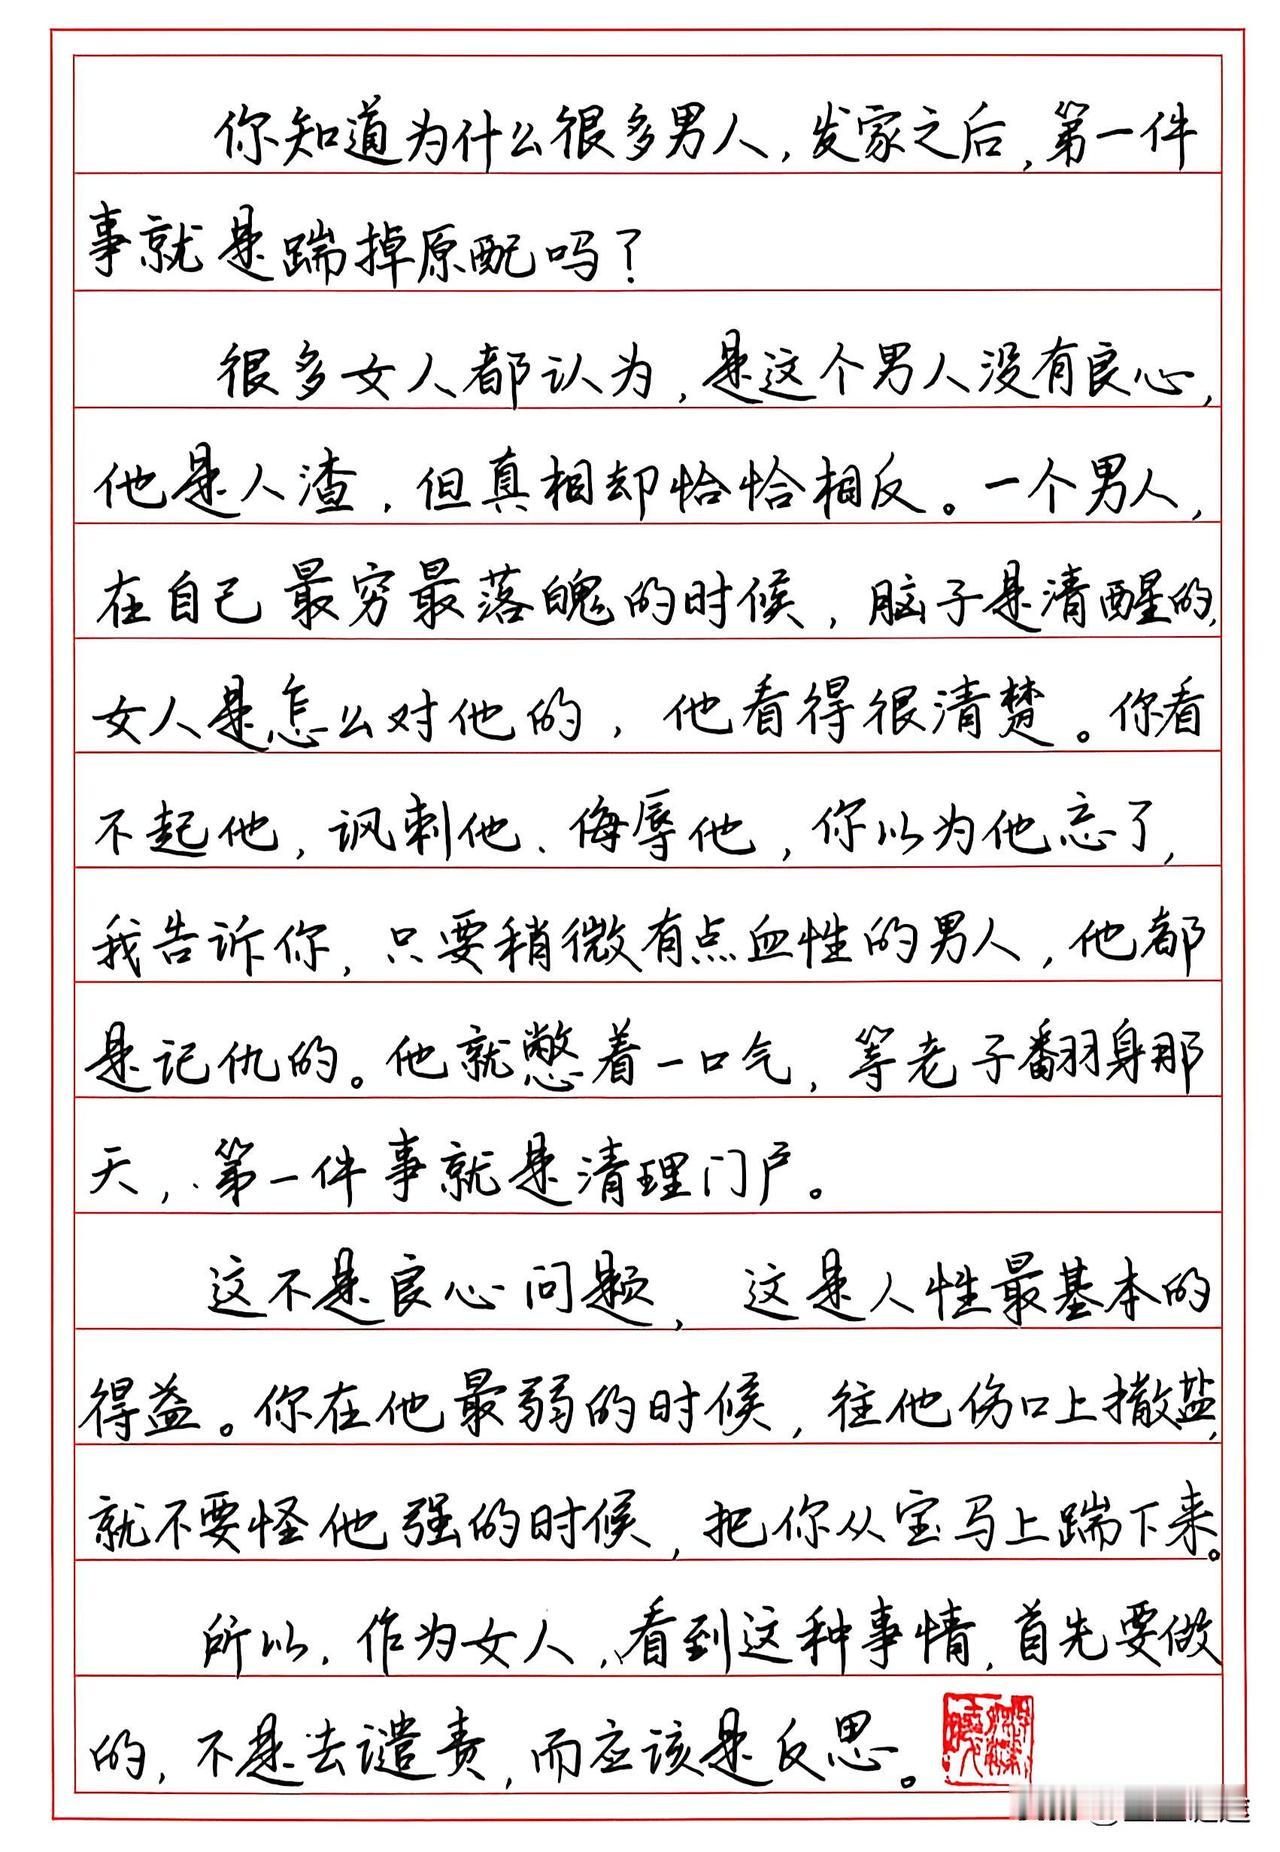 你知道为什么很多男人，发家之后，第一件
事就是踹掉原配吗？
很多女人都认为，是这个男人没有良心，
他是人渣，但真相却恰恰相反。一个男人，
在自己最穷最落魄的时候，脑子是清醒的，
女人是怎么对他的，他看得很清楚。你看
不起他，讽刺他、侮辱他，你以为他忘了，
我告诉你，只要稍微有点血性的男人，他都
是记仇的。他就憋着一口气，等老子翻身那
天，第一件事就是清理门户。
这不是良心问题，这是人性最基本的
得益。你在他最弱的时候，往他伤口上撒盐，
就不要怪他强的时候，把你从宝马上踹下来。
所以，作为女人，看到这种事情，首先要做
的，不是去谴责，而应该是反思。